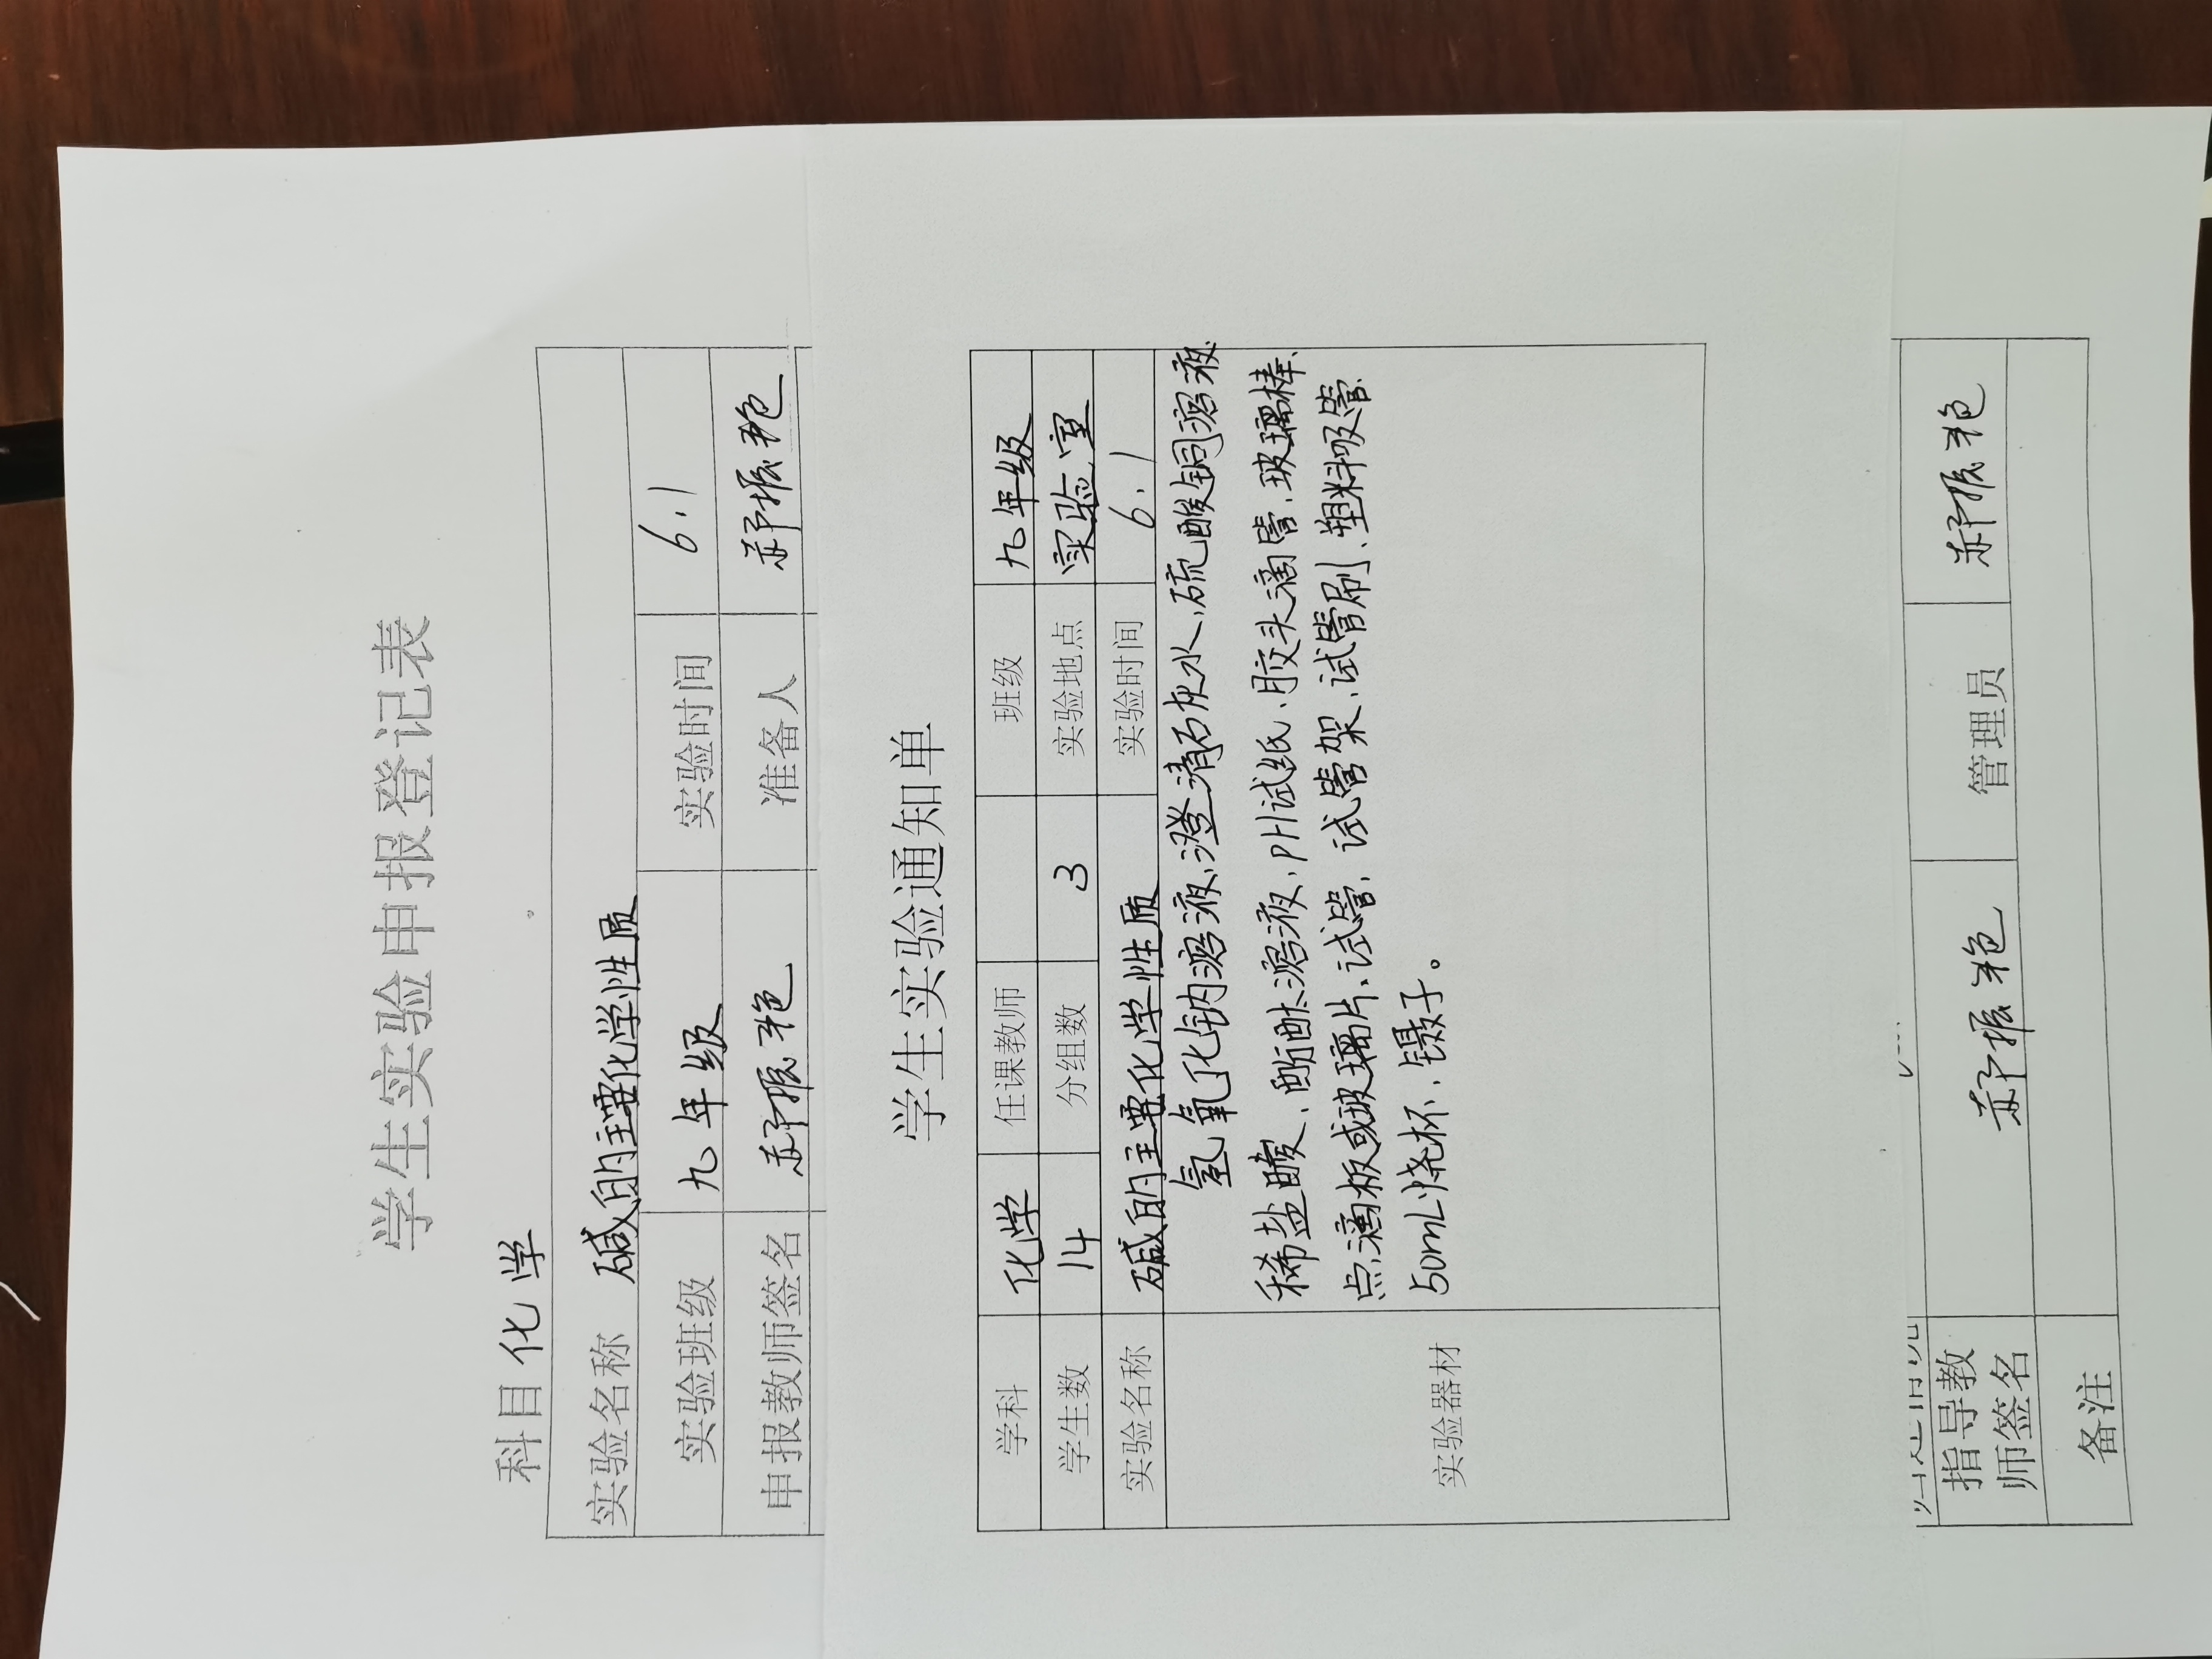 学生实验申报登记表
科目 化学
实验名称 碱的主要化学性质
实验班级 九年级 实验时间 6.1
申报教师签名 准备人
学生实验通知单
学科 化学 任课教师 班级 九年级
学生数 14 分组数 3 实验地点 实验室
实验名称 碱的主要化学性质 实验时间 6.1
实验器材
氢氧化钠溶液、澄清石灰水、硫酸铜溶液、
稀盐酸、酚酞溶液、PH试纸、胶头滴管、玻璃棒、
点滴板或玻璃片、试管、试管架、试管刷、塑料吸管、
50mL烧杯、镊子。
指导教
师签名 管理员
备注